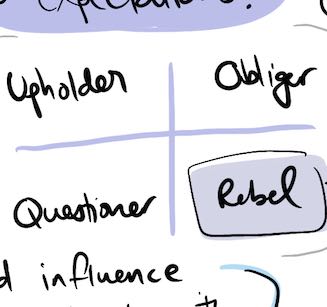 expectations?
Upholder Obliger
Questioner Rebel
influence